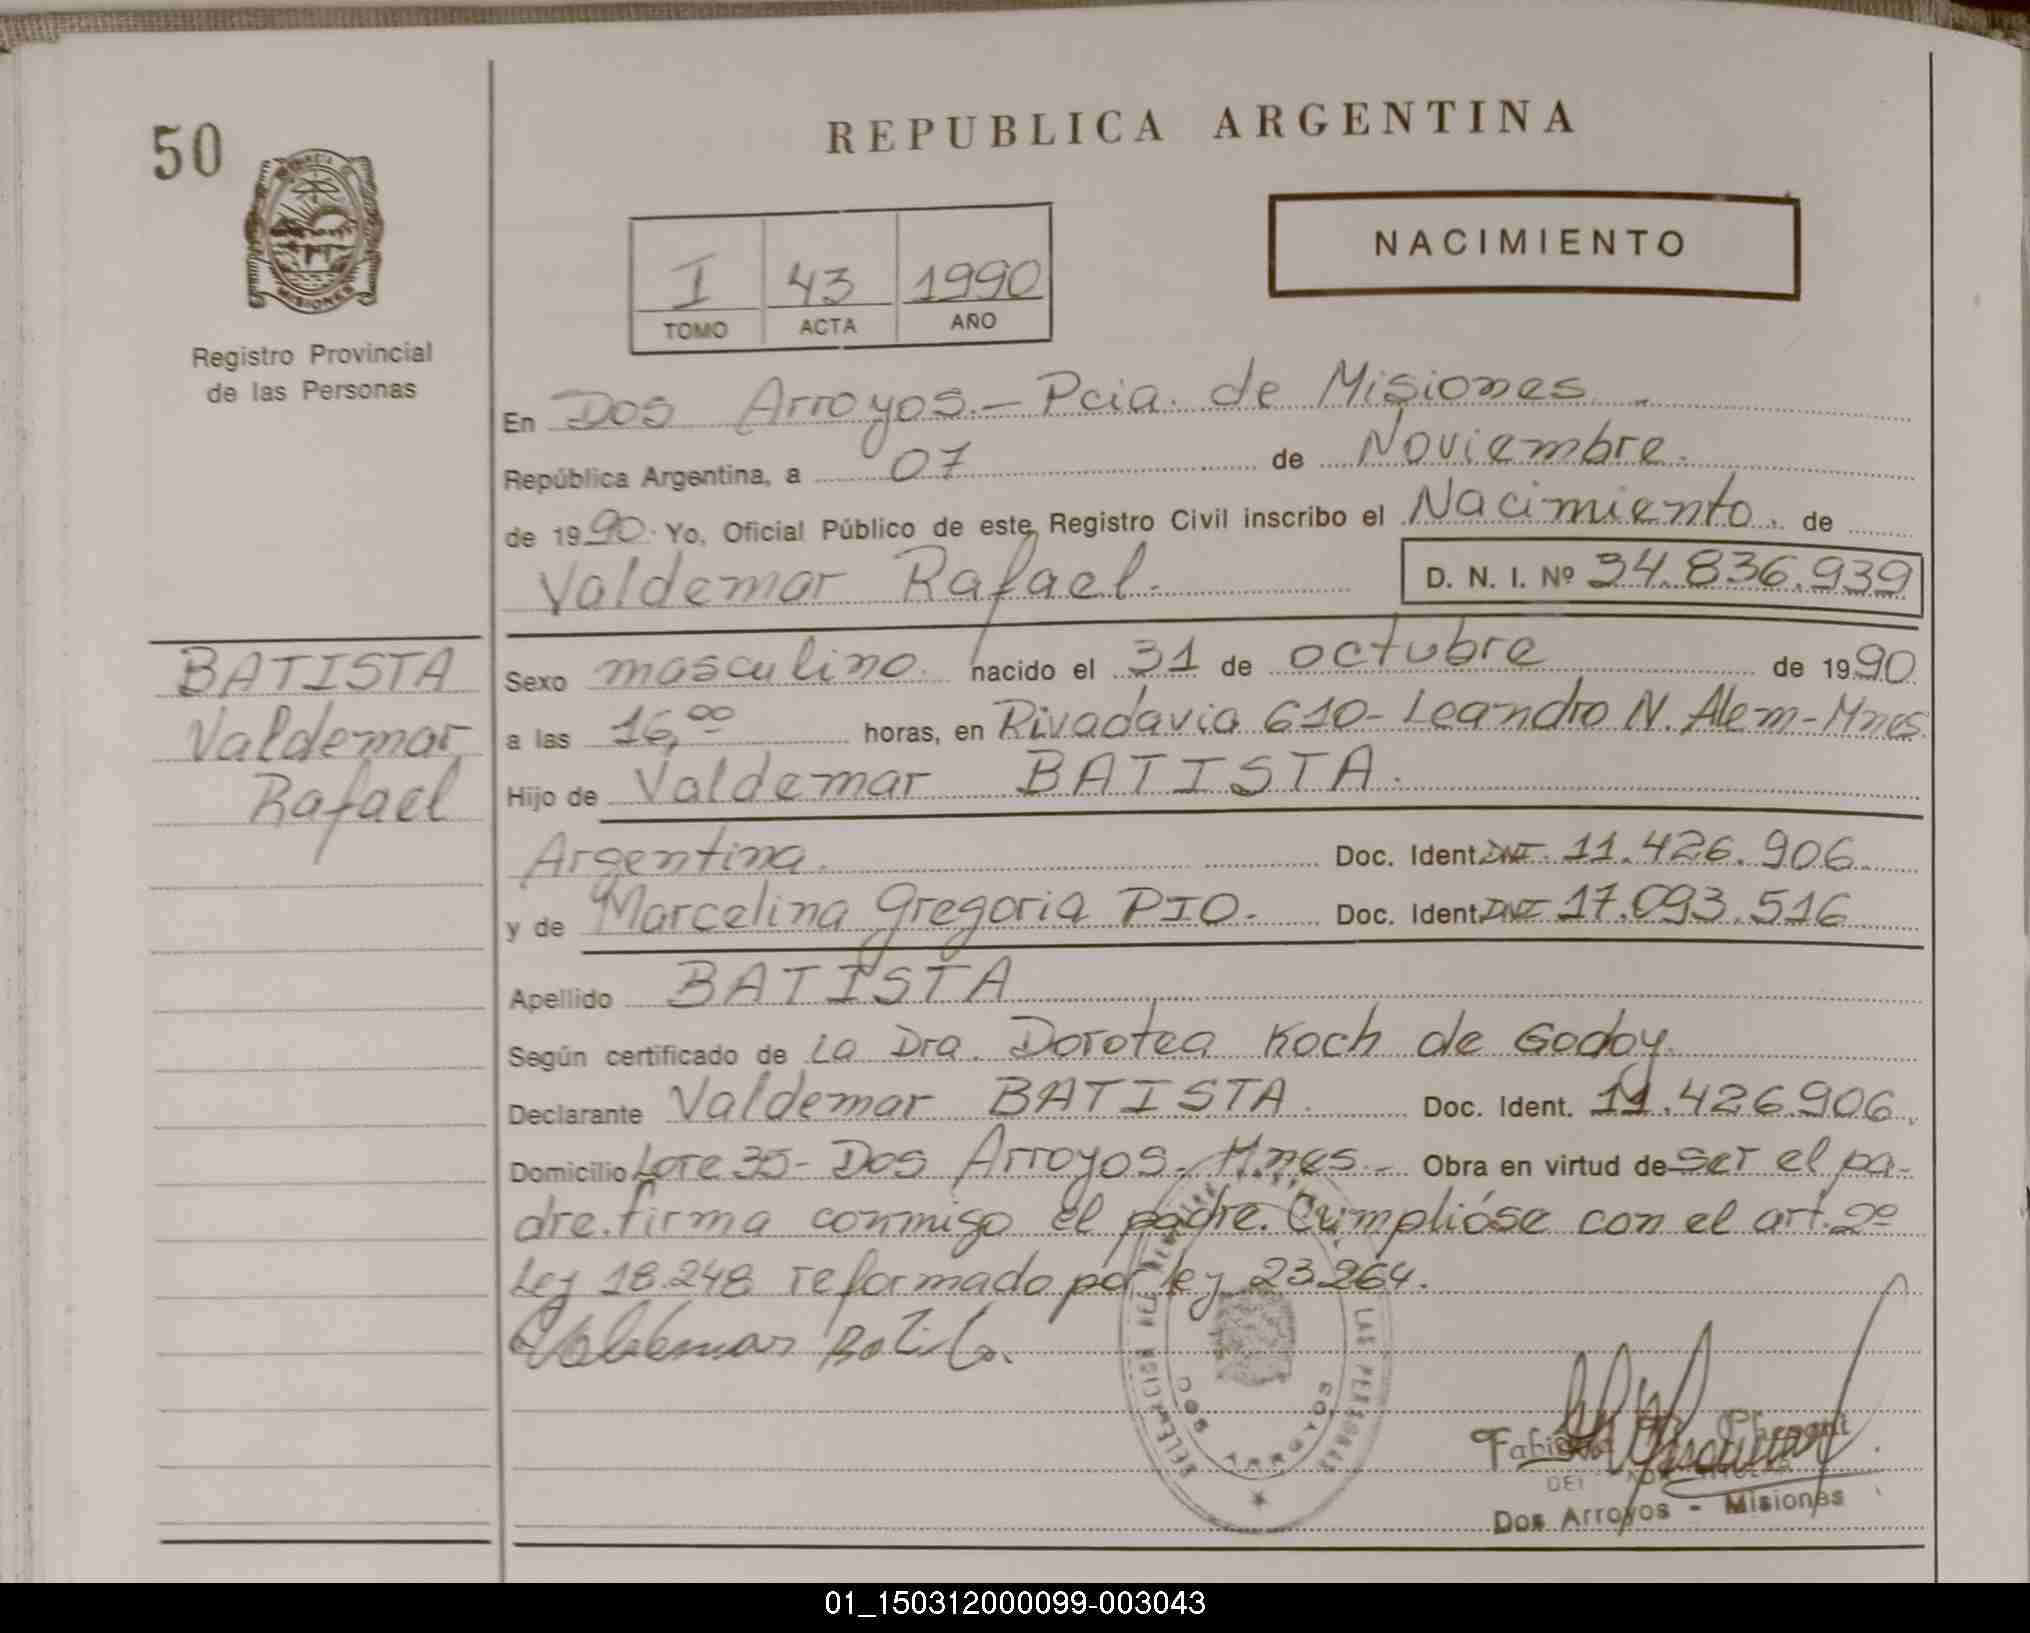 50
REPUBLICA ARGENTINA
NACIMIENTO
I 43 1990
TOMO ACTA AÑO
MISIONES
Registro Provincial
de las Personas
En Dos Arroyos.- Pcia. de Misiones.
República Argentina, a 07 de Noviembre.
de 1990. Yo, Oficial Público de este Registro Civil inscribo el Nacimiento. de
Valdemar Rafael. D. N. I. Nº 34.836.939
BATISTA
Valdemar
Rafael
Sexo masculino. nacido el 31 de octubre de 1990
a las 16,00 horas, en Rivadavia 610- Leandro N. Alem-Mnes.
Hijo de Valdemar BATISTA.
Argentina. Doc. Ident. DNI. 11.426.906.
y de Marcelina Gregoria PIO. Doc. Ident. DNI 17.093.516
Apellido BATISTA
Según certificado de La Dra. Dorotea Koch de Godoy.
Declarante Valdemar BATISTA. Doc. Ident. 11.426.906.
Domicilio Lote 35- Dos Arroyos. Mnes.- Obra en virtud de ser el pa-
dre. firma conmigo el padre. Cumplióse con el art. 2º
Ley 18.248 reformado por ley 23.264.
Valdemar Batista.
LAS PERSONAS
DOS ARROYOS
Dos Arroyos - Misiones
01_150312000099-003043